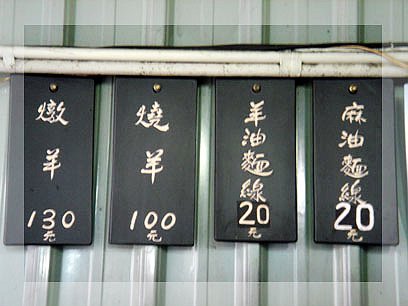 燉羊
130
元
燒羊
100
元
羊油麵線
20
元
麻油麵線
20
元